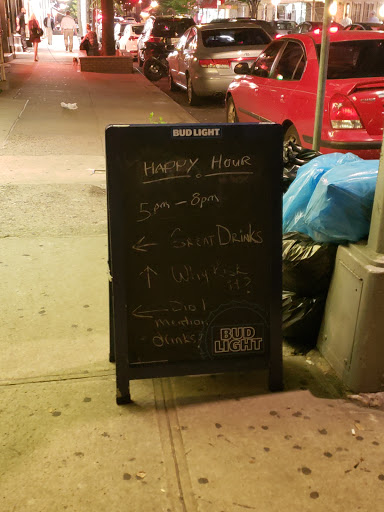 BUD LIGHT
HAPPY HOUR
5pm - 8pm
← GREAT DRINKS
↑ Why Risk
it?
← Did I
mention
drinks?
BUD
LIGHT